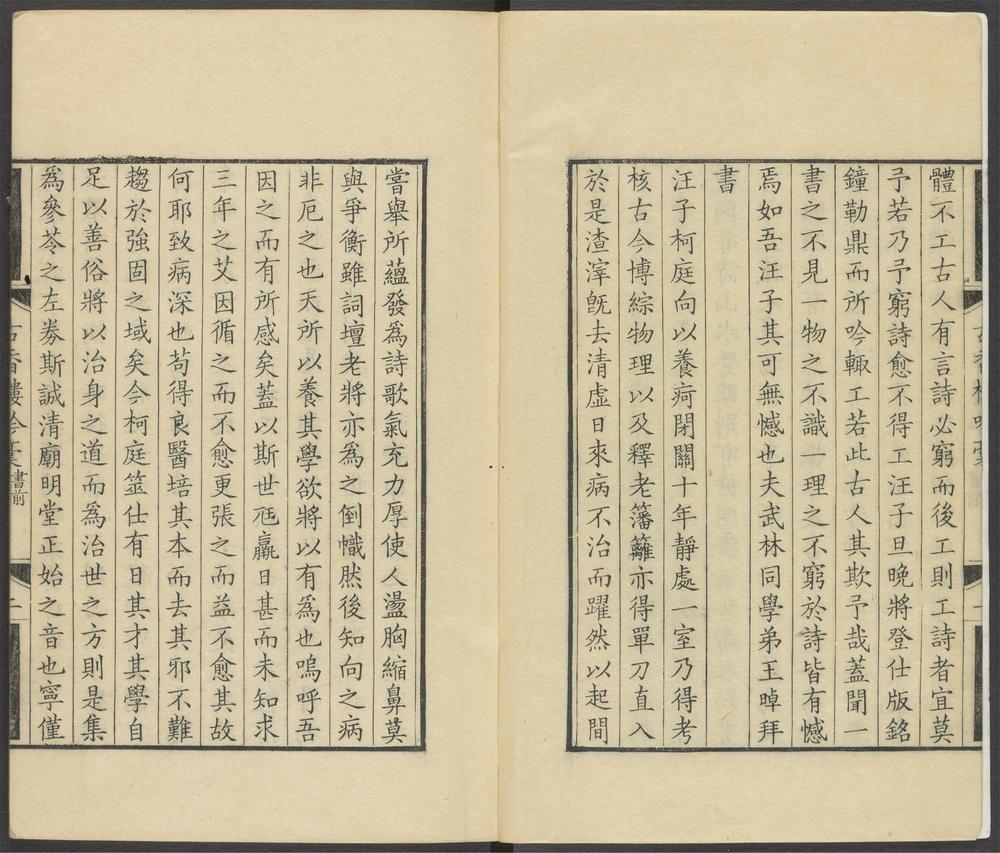 體不工古人有言詩必窮而後工則工詩者宜莫
予若乃予窮詩愈不得工汪子旦晚將登仕版銘
鐘勒鼎而所吟輒工若此古人其欺予哉蓋聞一
書之不見一物之不識一理之不窮於詩皆有憾
焉如吾汪子其可無憾也夫武林同學弟王晫拜
書
汪子柯庭向以養痾閉關十年靜處一室乃得考
核古今博綜物理以及釋老籓籬亦得單刀直入
於是渣滓旣去清虛日來病不治而躍然以起間
嘗舉所蘊發爲詩歌氣充力厚使人盪胸縮鼻莫
與爭衡雖詞壇老將亦爲之倒幟然後知向之病
非厄之也天所以養其學欲將以有爲也嗚呼吾
因之而有所感矣蓋以斯世尫羸日甚而未知求
三年之艾因循之而不愈更張之而益不愈其故
何耶致病深也苟得良醫培其本而去其邪不難
趨於強固之域矣今柯庭筮仕有日其才其學自
足以善俗將以治身之道而爲治世之方則是集
爲參苓之左劵斯誠清廟明堂正始之音也寧僅
古香樓吟稾
書前
二